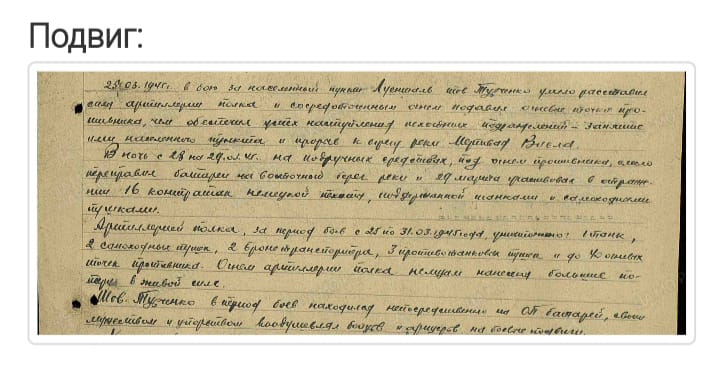 Подвиг:
25.03.1945г. в бою за населенный пункт тов. Тупченко умело расставил
силы артиллерии полка и сосредоточенным огнем подавил огневые точки про-
тивника, чем обеспечил успех наступления пехотных подразделений – занятие
ими населенного пункта и прорыв к берегу реки Мертвая Висла.
В ночь с 28 на 29.03.45г. на подручных средствах, под огнем противника, смело
переправил батареи на восточный берег реки и 29 марта участвовал в отраже-
нии 16 контратак немецкой пехоты, поддержанной танками и самоходными
пушками.
Артиллерией полка, за период боев с 25 по 31.03.1945 года, уничтожено: 1 танк,
2 самоходных пушки, 2 бронетранспортера, 3 противотанковых пушки и до 40 огневых
точек противника. Огнем артиллерии полка немцам нанесены большие по-
тери в живой силе.
Тов. Тупченко в период боев находился непосредственно на ОП батарей, своим
мужеством и упорством воодушевлял бойцов и офицеров на боевые подвиги.